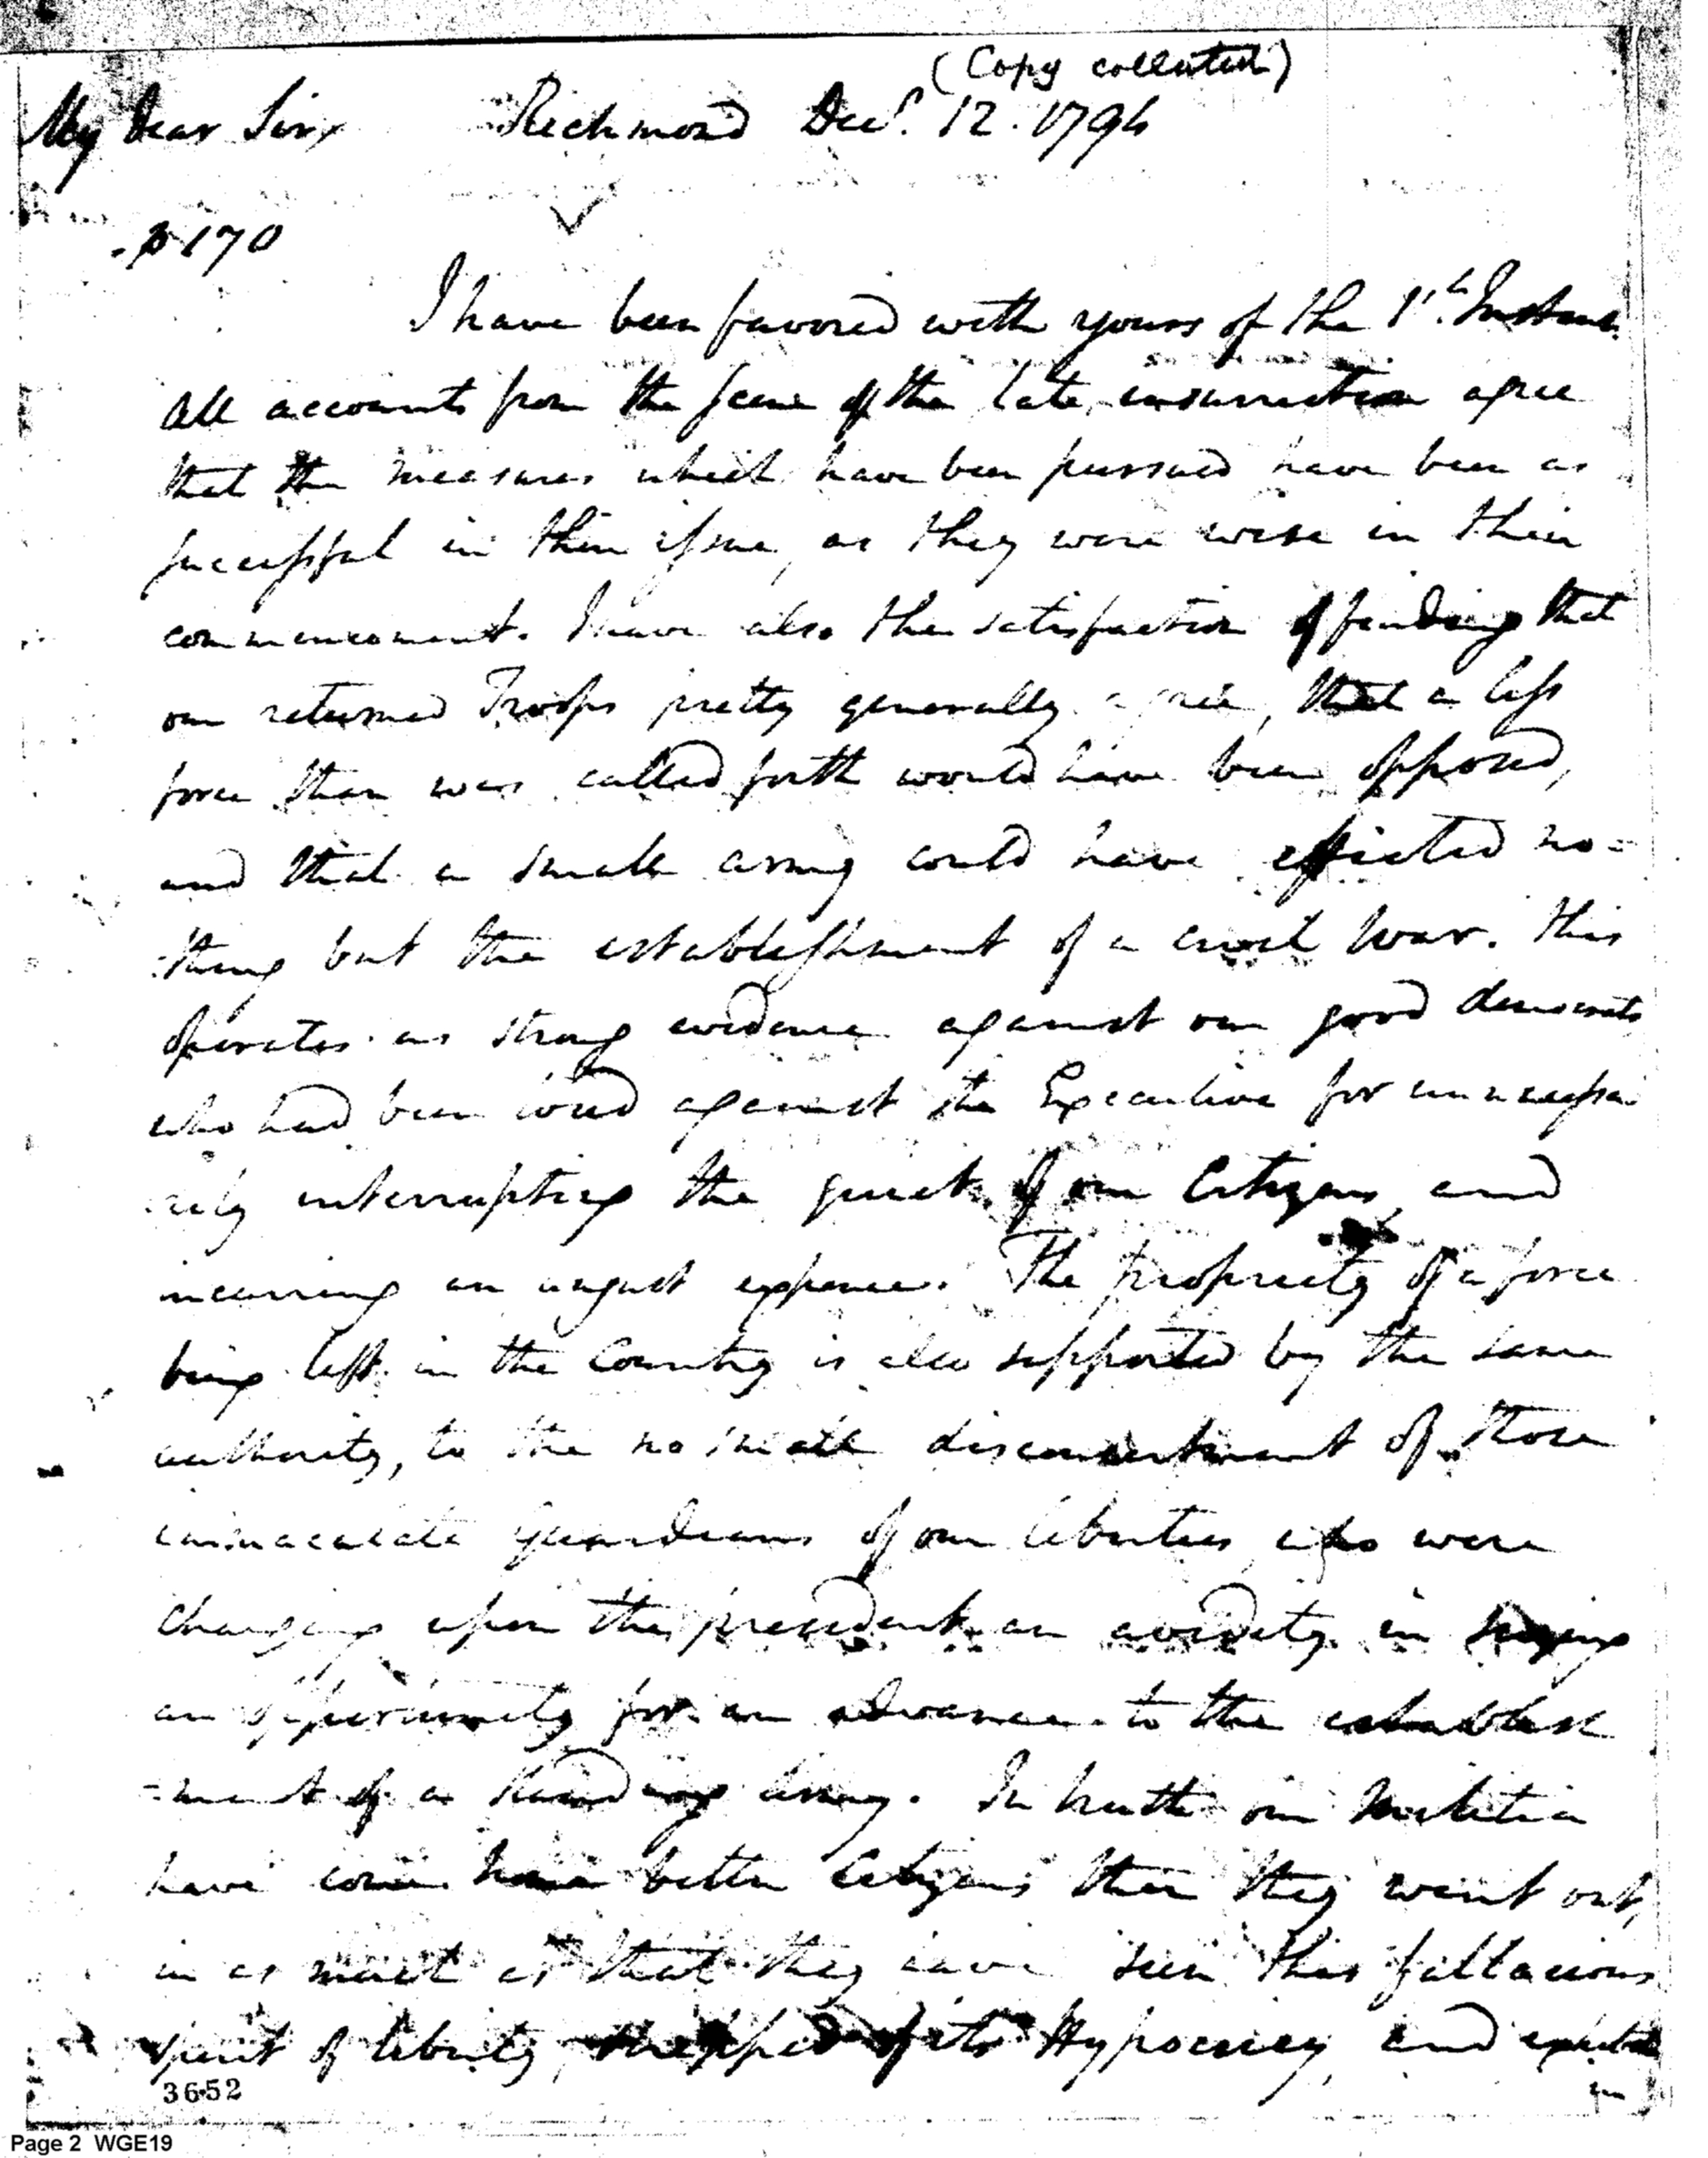 (Copy collated)
My Dear Sir, Richmond Decr. 12. 1794
p 170
I have been favored with yours of the 1st. Instant.
All accounts from the scene of the late insurrection agree
that the measures which have been pursued have been as
successful in their issue, as they were wise in their
commencement. I have also the satisfaction of finding that
our returned Troops pretty generally agree, that a less
force than was called forth would have been opposed,
and that a small army could have effected no-
-thing but the establishment of a civil War. This
operates as strong evidence against our good democrats
who had been loud against the Executive for unnecessa
rily interrupting the quiet of our Citizens and
incurring an unjust expence. The propriety of a force
being left in the Country is also supported by the same
authority, to the no small disconcertment of those
immaculate Guardians of our liberties who were
charging upon the president an avidity in seizing
an opportunity for an advance to the establish
-ment of a standing army. In truth our Militia
have come home better Citizens than they went out,
in as much as that they have seen this fallacious
spirit of liberty, stripped of its Hypocricy, and exposed
in
3652
Page 2 WGE19